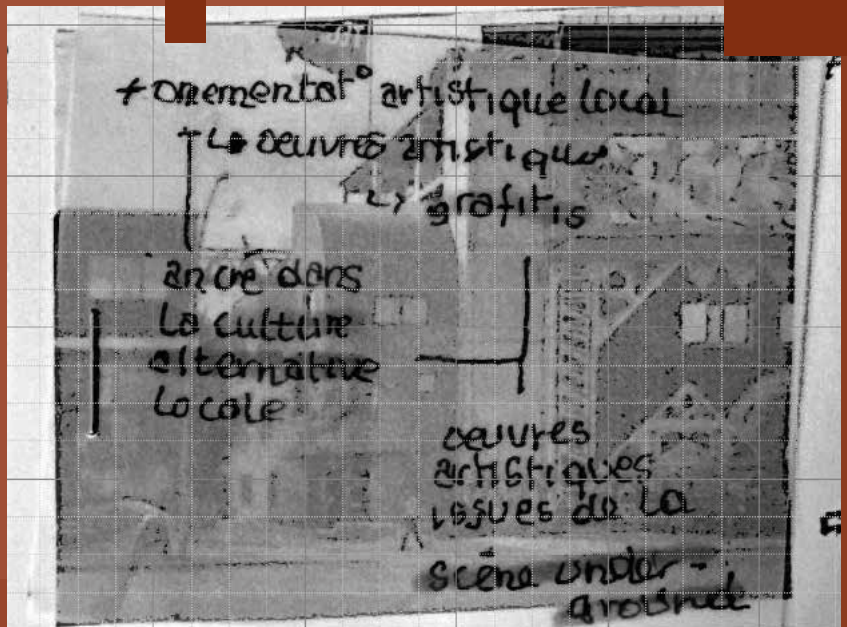 + ornementat° artistique local
↳ oeuvres artistiques
↳ grafitis
ancré dans
la culture
alternative
locale
œuvres
artistiques
issues de la
scène under-
ground